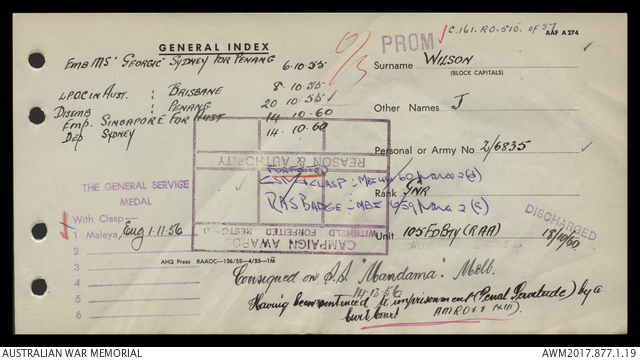 GENERAL INDEX
EMB MS 'GEORGIC' SYDNEY FOR PENANG 6.10.55
L.P.O.C IN AUST. : BRISBANE 8.10.55
DISEMB : PENANG 20.10.55
EMP. SINGAPORE FOR AUST 14.10.60
DEP SYDNEY 14.10.60
PROM C.161.R.O.510. OF 57 AAF A274
Surname WILSON
(BLOCK CAPITALS)
Other Names J
Personal or Army No. 2/6835
Rank GNR
Unit 105 FD BTY (RAA)
DISCHARGED
18/10/60
REASON & AUTHORITY
FORFEITED
CLASP :
RAS BADGE :
WITHHELD FORFEITED RESTORED
CAMPAIGN AWARDS
THE GENERAL SERVICE
MEDAL
With Clasp
1 Malaya, Aug 1-11-56
2
3
4
5
6
AHQ Press RAAOC—136/55—4/55—1M
Consigned on S.S. "Mandama" Melb.
14.12.56
Having been sentenced to imprisonment (Penal Servitude) by a
Civil Court
AUSTRALIAN WAR MEMORIAL
AWM2017.877.1.19